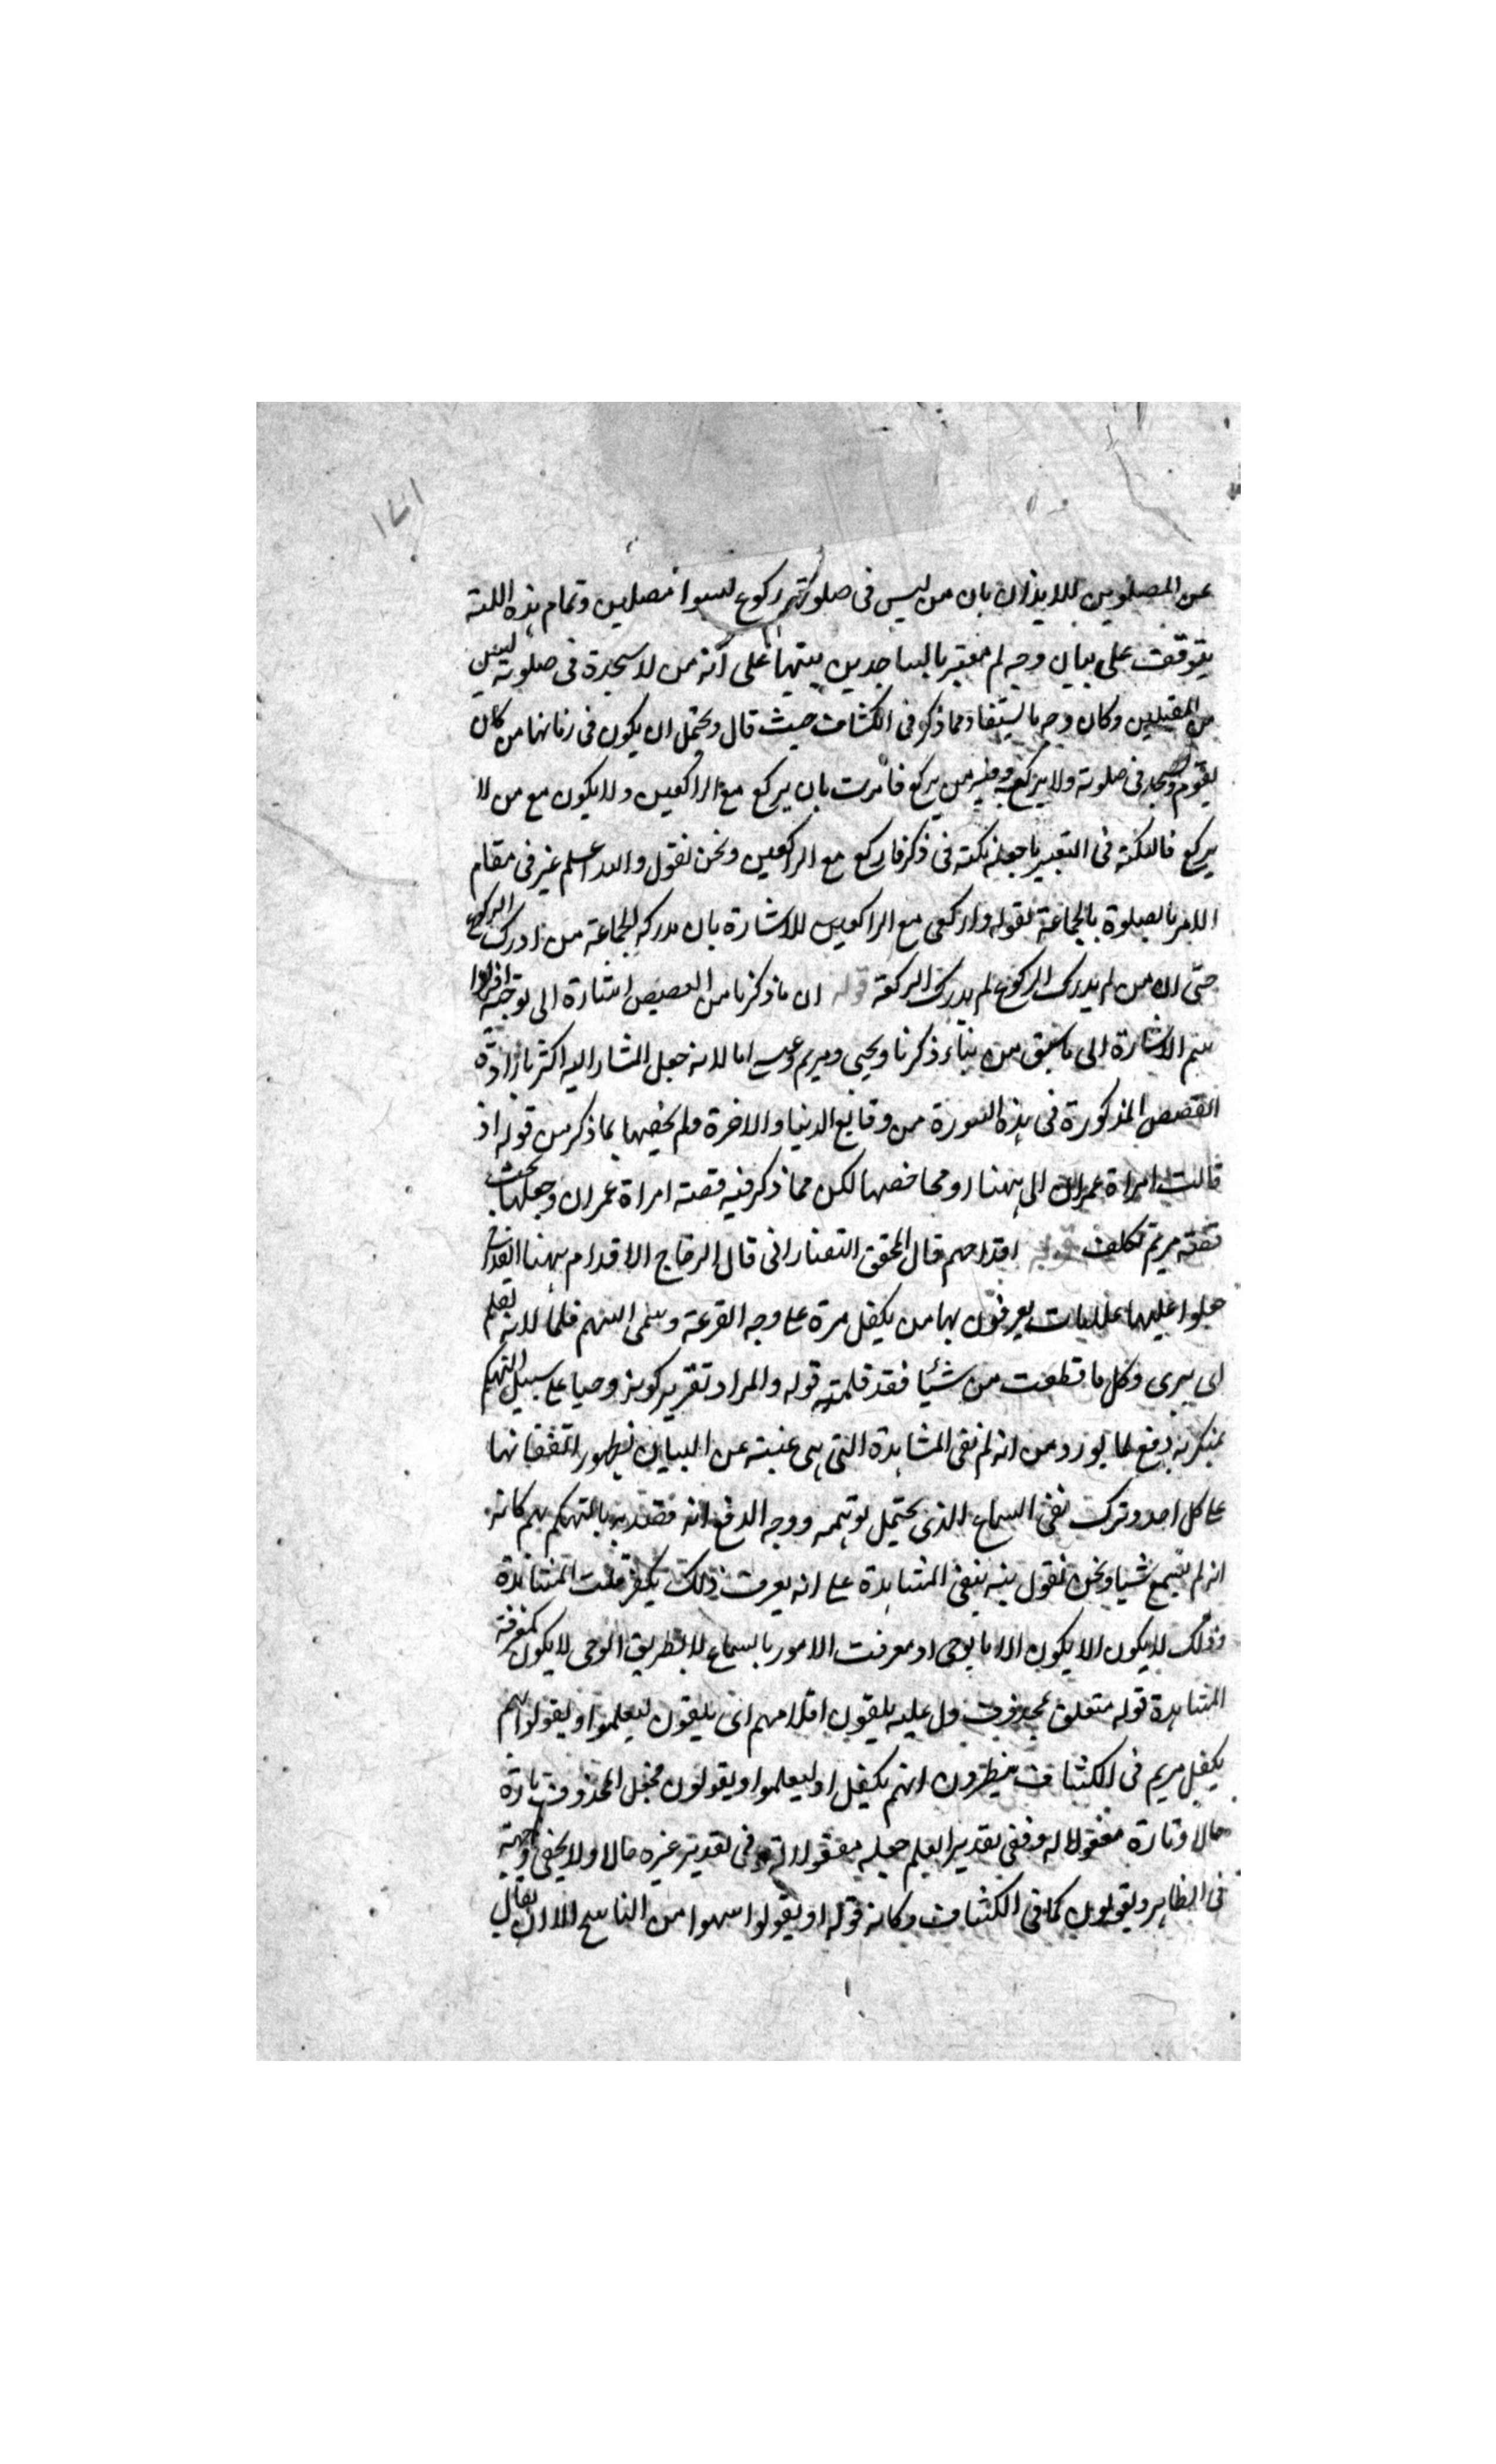 ١٧١
عن المصلوين للايذان بان من ليس فى صلوتهم ركوع ليسوا مصلين وتمام هذه النكتة
يتوقف على بيان وجه لم يعتبر بالساجدين تنبيها على انه من لا سجدة فى صلوته ليس
من المقبلين وكان وجه ما يستفاد مما ذكر فى الكشاف حيث قال ويحتمل ان يكون فى زمانها من كان
يقوم ويسجد فى صلوته ولا يركع وفيه من يركع فامرت بان يركع مع الراكعين ولا يكون مع من لا
يركع فالنكتة فى التعبير ما جعله نكتة فى ذكر فاركع مع الراكعين ونحن نقول والله اعلم غير فى مقام
الامر بالصلوة بالجماعة لقوله واركعى مع الراكعين للاشارة بان مدركه الجماعة من ادرك الركوع
حتى ان من لم يدرك الركوع لم يدرك الركعة قوله ان ما ذكرنا من القصص اشارة الى توجيه افراد
اسم الاشارة الى ما سبق من نباء ذكريا ويحيى ومريم وعيسى اما لانه جعل المشار اليه اكثر بارادة
القصص المذكورة فى هذه السورة من وقايع الدنيا والاخرة ولم يخصها بما ذكر من قوله اذ
قالت امراة عمران الى ههنا لكن مما ذكر فيه قصة امراة عمران وجعلها تحت
قصة مريم تكلف قوله اقداحهم قال المحقق التفتازانى قال الزجاج الاقدام ههنا القداح
جعلوا عليها علامات يعرفون بها من يكفل مرة على وجه القرعة وسمى السهم قلما لانه يقلم
اى يبرى وكل ما قطعت من شيئا فقد قلمته قوله والمراد تقرير كونه وحيا على سبيل التهكم
بمنكريه دفع لما يورد من انه لم نفى المشاهدة التى هى غنية عن البيان لظهور انتفائها
على كل احد وترك نفى السماع الذى يحتمل توهمه ووجه الدفع انه قصد به التهكم بهم كانه
انه لم يسمع شيا ونحن نقول نبه بنفى المشاهدة على انه يعرف ذلك المشاهدة
وذلك لا يكون الا يكون الا بالوحى اذ معرفت الامور بالسماع لا بطريق الوحى لا يكون كمعرفة
المشاهدة قوله متعلق بمحذوف دل عليه يلقون اقلامهم اى يلقون ليعلموا او يقولوا ايهم
يكفل مريم فى الكشاف ينظرون ايهم يكفل او ليعلموا او يقولون فجعل المحذوف تارة
حالا وتارة مفعولا له وفى تقدير العلم جعله مفعولا له وفى تقدير غيره حالا ولا يخفى وجهه
فى الظاهر ويقولون كما فى الكشاف وكانه قوله او يقولوا سهوا من الناسخ الا ان يقال